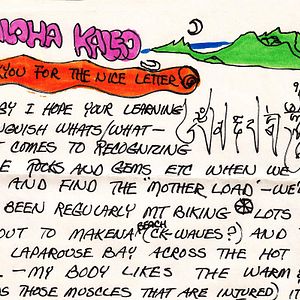 ALOHA KALEO
YOU FOR THE NICE LETTER
I HOPE YOUR LEARNING
NGUISH WHATS/WHAT—
T COMES TO RECOGNIZING
E ROCKS AND GEMS, ETC WHEN WE
AND FIND THE "MOTHER LOAD"—WE'
BEEN REGULARLY MT BIKING LOTS
OUT TO MAKENA BEACH (CK-WAVES?) AND
LAPAROUSE BAY ACROSS THE HOT
—MY BODY LIKES THE WARM
S THOSE MUSCLES THAT ARE INTURED)